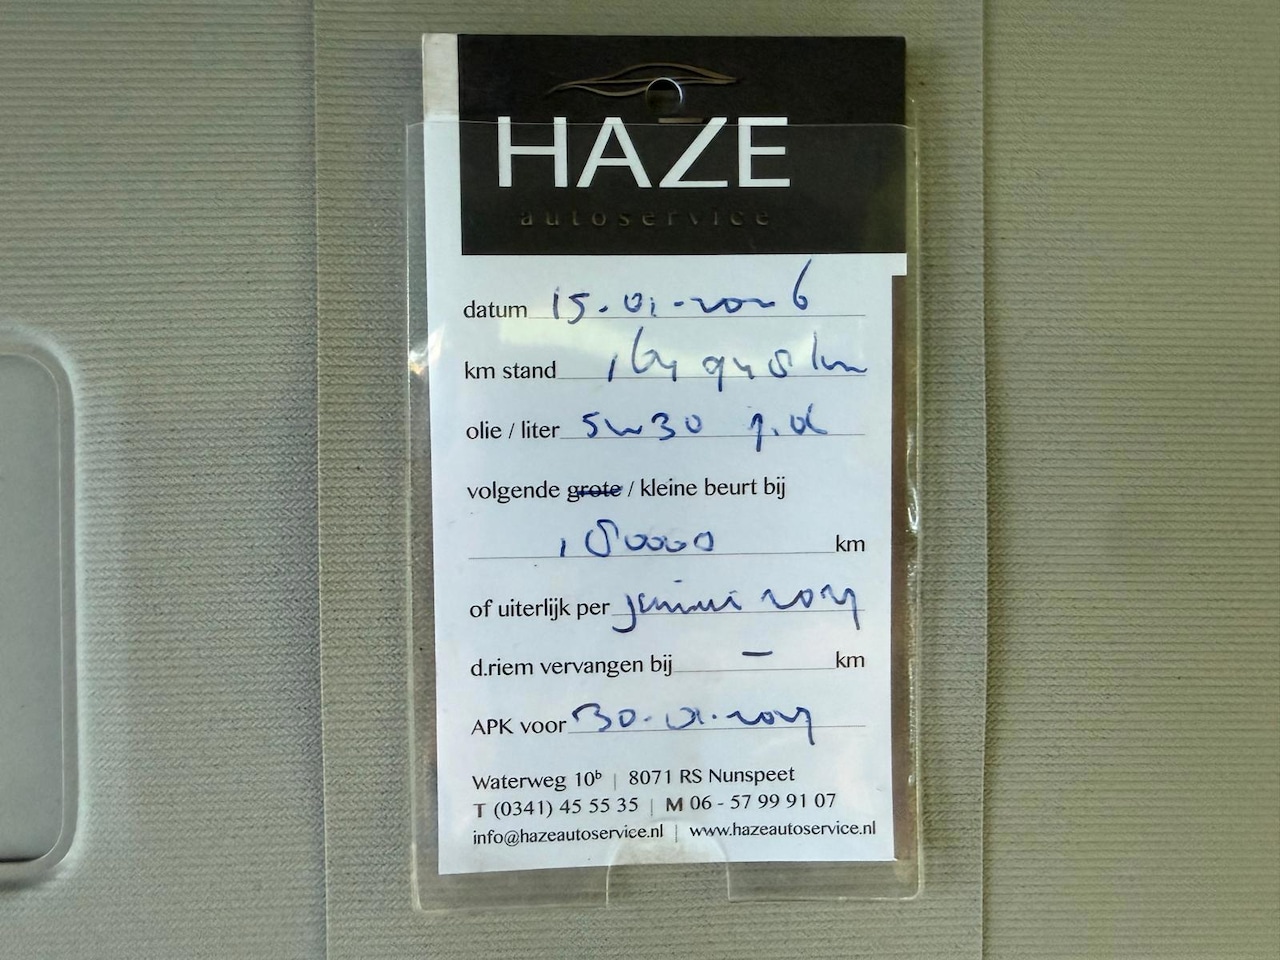 HAZE
autoservice
datum 15-01-2026
km stand km
olie / liter 5w30
volgende grote / kleine beurt bij
180000 km
of uiterlijk per 2027
d.riem vervangen bij - km
APK voor 30-01-2027
Waterweg 10b | 8071 RS Nunspeet
T (0341) 45 55 35 | M 06 - 57 99 91 07
info@hazeautoservice.nl | www.hazeautoservice.nl